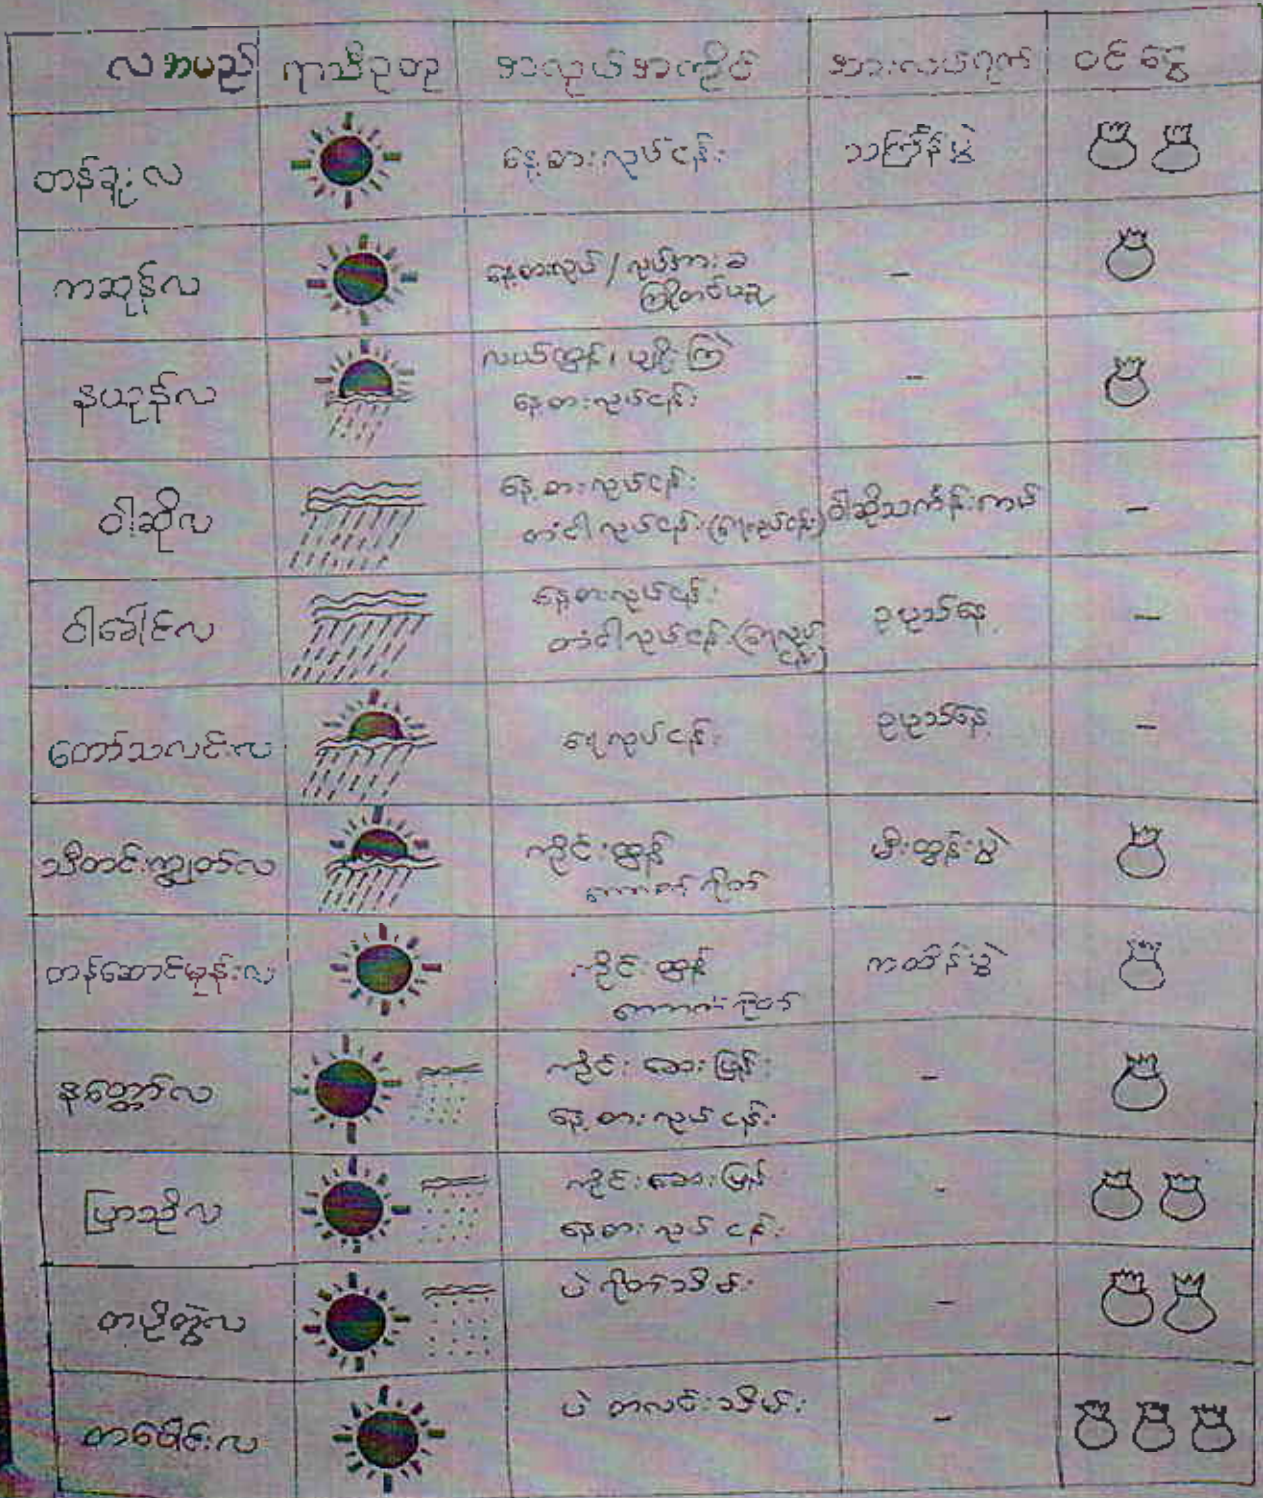 လအမည် ရာသီဥတု အလုပ်အကိုင် အားလပ်ရက် ဝင်ငွေ
တန်ခူးလ နေ့စားလုပ်ငန်း သင်္ကြန်ပွဲ
ကဆုန်လ နေ့စားလုပ် / လုပ်အားခ -
ကြိုတင်ယူ
နယုန်လ လယ်ထွန်၊ ပျိုးကြဲ -
နေ့စားလုပ်ငန်း
ဝါဆိုလ နေ့စားလုပ်ငန်း
တံငါလုပ်ငန်း (ရေလုပ်ငန်း) ဝါဆိုသင်္ကန်းကပ် -
ဝါခေါင်လ နေ့စားလုပ်ငန်း ဥပုသ်နေ့ -
တံငါလုပ်ငန်း (ရေလုပ်
ငန်း)
တော်သလင်းလ ရေလုပ်ငန်း ဥပုသ်နေ့ -
သီတင်းကျွတ်လ ကိုင်းထွန် မီးထွန်းပွဲ
ရိတ်
တန်ဆောင်မုန်းလ ကိုင်းထွန် ကထိန်ပွဲ
ရိတ်
နတ္တော်လ ကိုင်းဆေးဖြန်း -
နေ့စားလုပ်ငန်း
ပြာသိုလ ကိုင်းဆေးဖြန်း -
နေ့စားလုပ်ငန်း
တပို့တွဲလ ပဲရိတ်သိမ်း -
တပေါင်းလ ပဲတလင်းသိမ်း -